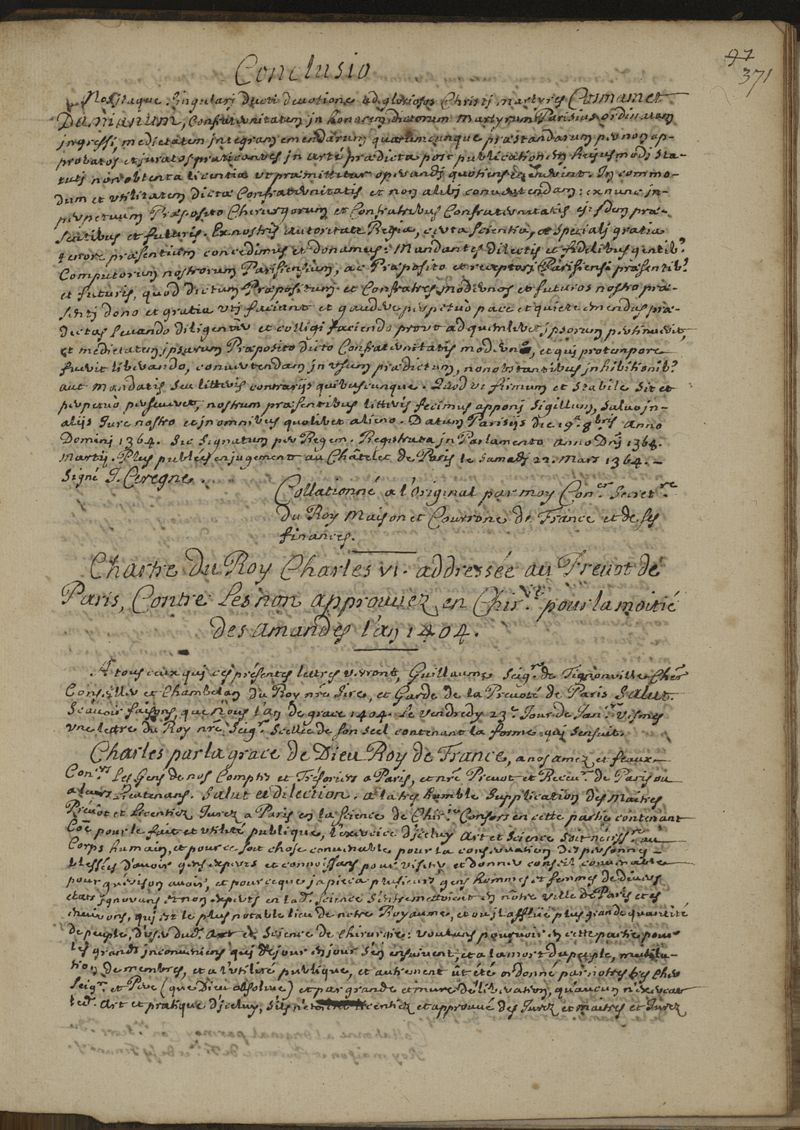 97
371
Conclusio
Nos itaque singulari ducti devotione ad gloriosos Christi martyres Cosmam et
Damianum, Confraternitatem in honorem dictorum Martyrum Parisius ordinatam
ingressi, medietatem integram emendarum quarumcunque præstandarum per non ap-
probatos et juratos praticantes in arte prædicta post publicationem hujusmodj sta-
tutj non obtenta licentia ut præmittitur operandj quotiens evenerint. In commo-
dum et utilitatem dictæ Confraternitatis et non alibj convertendam: ex nunc in-
perpetuum Præposito Chirurgorum et Confratribus Confraternitatis ejusdem præ-
sentibus et futuris. Ex nostris autoritate Regia, certa scientia, et specialj gratia
tenore præsentium concedimus et donamus: Mandantes dilectis et fidelibus gentib.
Computorum nostrorum Parisiensium, ac Præposito et receptori Parisiensi præsentib.
et futuris, quod dictum Præpositum et Confratres modernos et futuros nostro præ-
sentj dono et gratia utj faciant et gaudere perpetuo pace et quiete emendas præ-
dictas levando diligenter et colligi faciendo prout ad quemlibet ipsorum pertinuerit,
Et medietatem ipsarum Præposito dicto Confraternitatis moderno, et qui pro tempore
fuerit liberando, convertendam in usum prædictum, non obstantibus inhibitionib.
aut mandatis seu litteris contrarijs quibuscunque. Quod ut firmum et stabile sit et
perpetuo perseveret, nostrum præsentibus litteris fecimus apponj Sigillum, Salvo in-
alijs Jure nostro et in omnibus quolibet alieno. Datum Parisijs die 19.a 8bris Anno
Dominj 1364. Sic Signatum per Regem. Registrata in Parlamento anno Dnj 1364.
Martij. Plus publiées en jugement au Châtelet de Paris le Samedj 22. Mars 1364.
Signé J. Ceregne.
Collationné a l'Original par moy Con.er Secret.re
du Roy Maison et Couronne de France et de ses
finances.
Chartre du Roy Charles VI. addressée au Prevot de
Paris, Contre Les non approuuez en Chir.ie pour la moitié
des amandes l'an 1404.
A tous ceux quj ces présentes lettres verront, Guillaume Seig.r de Tignonville Cher
Conseiller et Chambelan du Roy nre Sire, et Garde de la Prevoté de Paris Salut.
Scavoir faisons, que Nous l'an de grace 1404. Le Vendredy 23.e Jour de Jan.r vismes
une lettre du Roy nre Seig.r Scellée de son Seel contenant la forme quj s'ensuit.
Charles par la grace de Dieu Roy de France, a nos amez et feaux
Con.ers Les Gens de nos Comptes et Trésoriers a Paris, et nre Prevot et Recev.r de Paris ou
a leurs Lieutenans. Salut et dilection. a la tres humble Supplication des Maîtres
Prevot et Licentiez Jurez a Paris en la science de Chir.ie Consors en cette partie contenant
Coe pour le fait et utilité publique, l'exercice d'jcelui Art et Science soit necess.re au
Corps humain, et pour ce soit chose convenable pour la conservation des personnes
blessées d'avoir gens experts et connoissans pour visiter et donner conseil convenable
pour guerison avoir, et pour ce que ja pieça plusieurs gens hommes et femmes de divers
etats ignorans et non experts en lad. science s'entremettoient en notre ville de Paris et es
environs, quj est le plus notable lieu de notre Royaume, et ou jl afflüe plus grande quantité
de peuple, d'user dud. Art et Science de Chirurgie: voulans pourvoir en cette partie pour
les grands inconveniens quj de jour en jour s'en ensuivent, et a la mort du peuple, mutila-
tion de membres, et a l'utilité publique, et autrement ût été ordonné par notre tres cher
Seig.r et Pere (que Dieu absolve) et par grande et mure délibération, qu'aucun n'exerceat
led. Art et pratique d'jceluy, s'il n'etoit licentiez et approuvé des Jurez et maîtres et Jurez